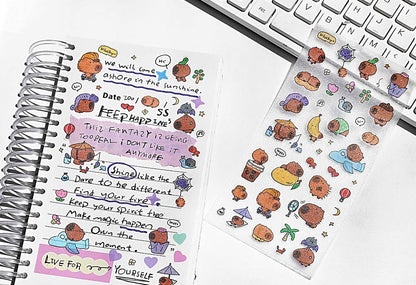 we will come
ashore in the sunshine.
Date
KEEP HAPPINESS
THIS FANTASY IS BEING
TOO REAL. I DON'T LIKE IT
ANYMORE
Shine like the
Dare to be different
Find your fire
Keep your spirit free
Make magic happen
Own the
moment.
LIVE FOR
YOURSELF